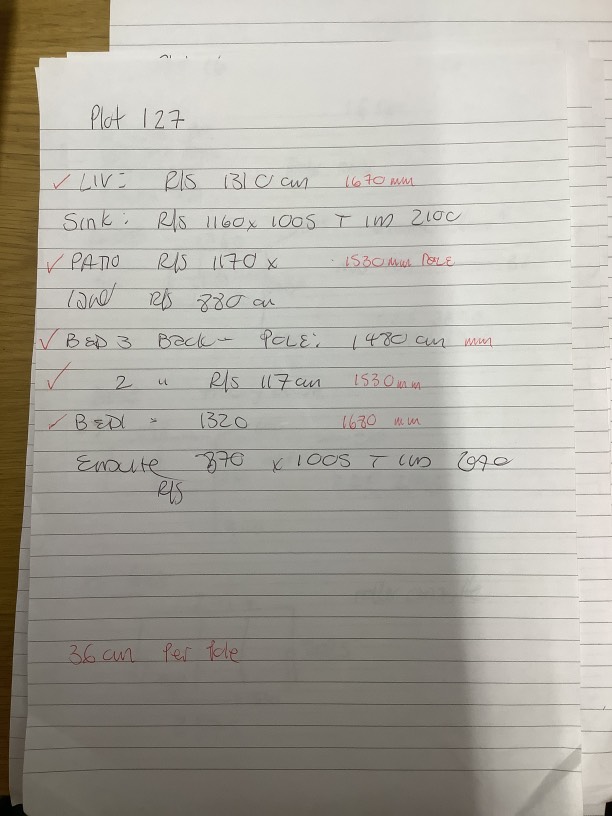 Plot 127
✓ LIV: R/S 1310 cm 1670 mm
Sink: R/S 1160 x 1005 T 1m 2100
✓ PATIO R/S 1170 x 1530 mm POLE
R/S 880 cm
✓ BED 3 Back - POLE: 1480 cm mm
✓ 2 " R/S 117 cm 1530 mm
✓ BED1 - 1320 1680 mm
Ensuite 870 x 1005 T 1m 2090
R/S
36 cm Per Pole